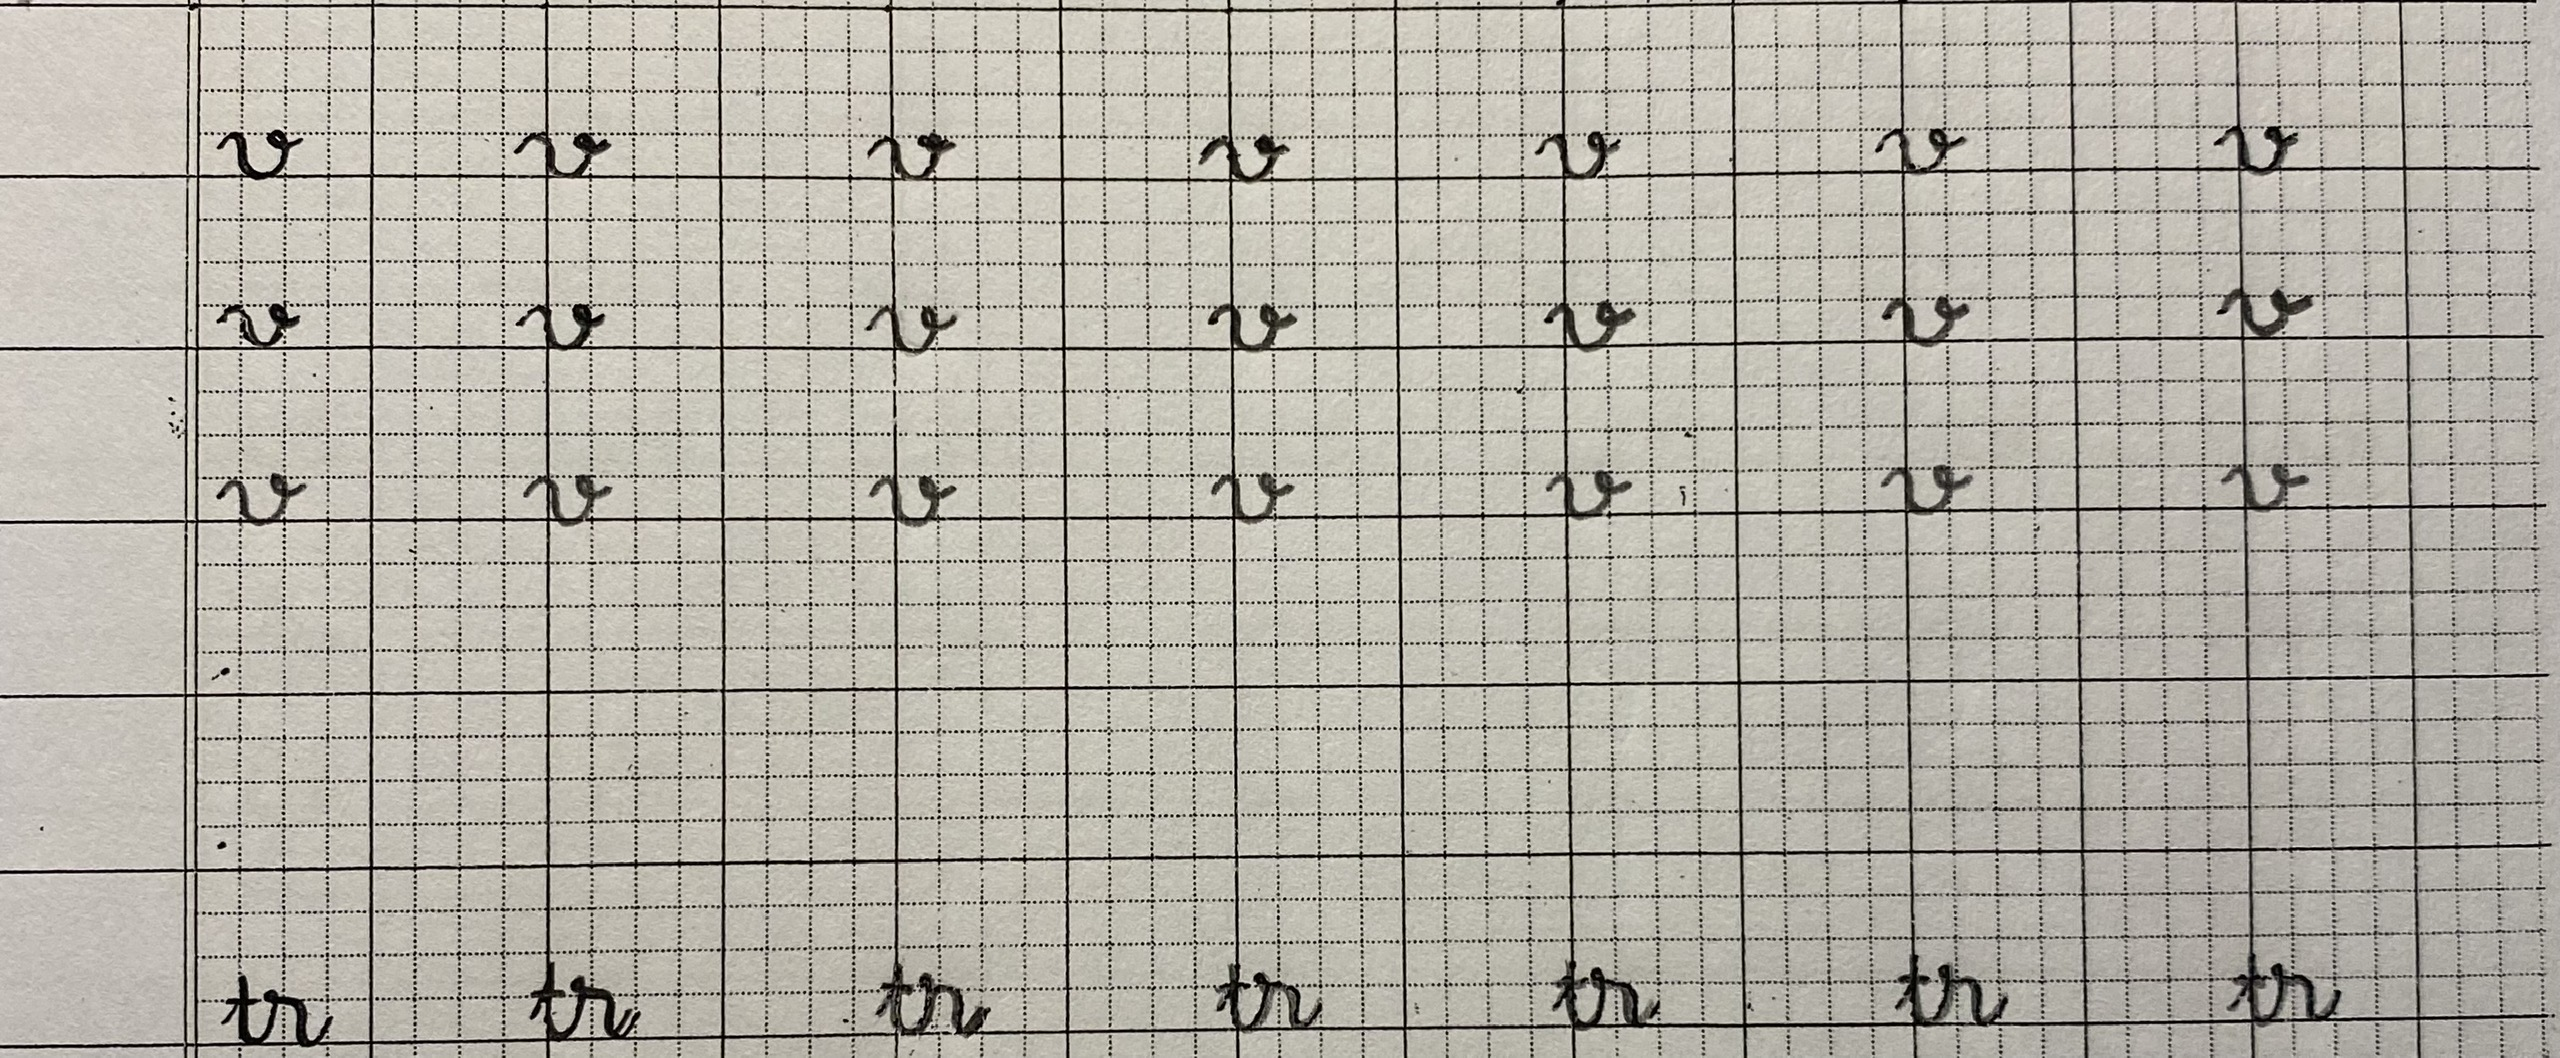 v v v v v v v
v v v v v v v
v v v v v v v
tr tr tr tr tr tr tr